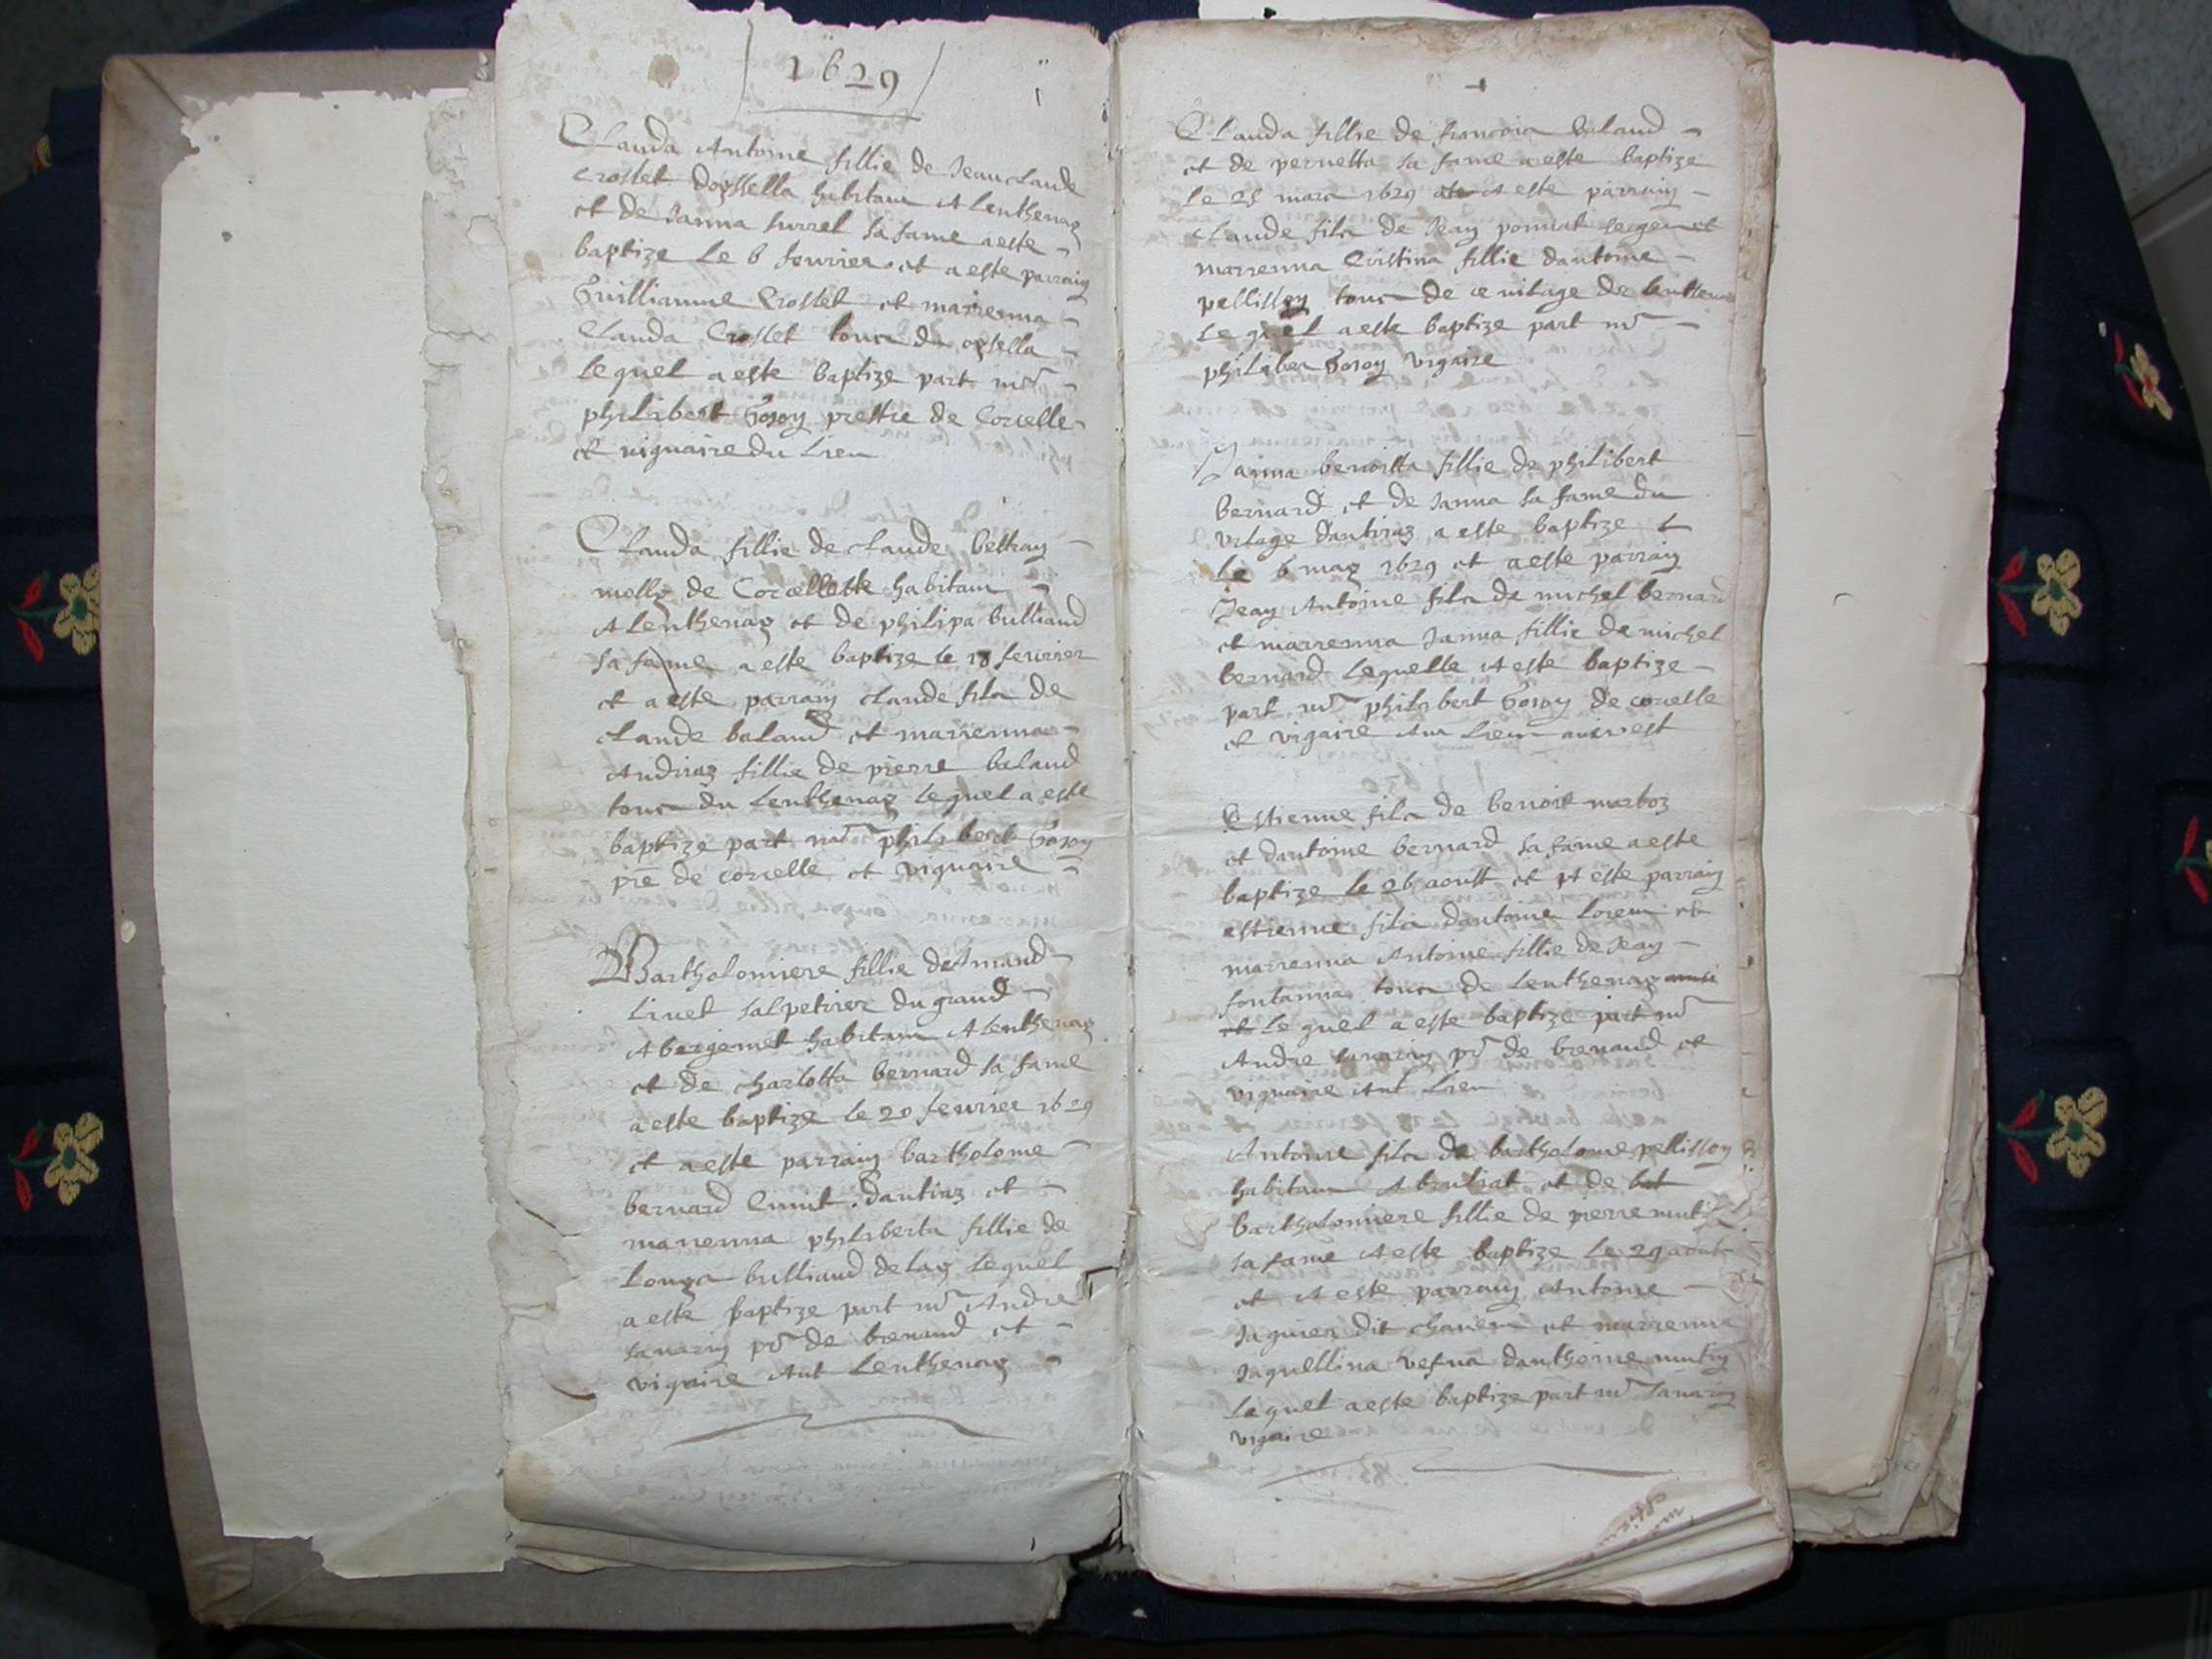 1629
Clauda Antoine fillie de Jean claude
crostet dopssella habitans A lenthenaz
et de Janna surrel sa fame a este
baptize le 6 feuvrier et a este parrain
Guillianme Crostet et marrenna
Clauda Crostet tous de opsella
lequel a este baptize part mre
philibert Goioy prestre de Corcelle
et viguaire du Lieu
Clauda fillie de claude beltran
molly de Corcellette habitans
A lenthenaz et de philipa bulliand
sa fame a este baptize le 18 feuvrier
et a este parrain claude fils de
claude baland et marrenna
Andriaz fillie de pierre baland
tous du lenthenaz lequel a este
baptize part mre philibert Goioy
pre de corcelle et viguaire
Bartholomiere fillie de Amand
Livet salpetrier du grand
Abergemet habitans A lenthenaz
et de charlotta bernard sa fame
a este baptize le 20 feuvrier 1629
et a este parrain bartholome
bernard dantiaz et
marrenna philiberta fillie de
Louys bulliand delaz lequel
a este baptize part mre Andre
savarin pre de brenaud et
vigaire Aut Lenthenaz
Clauda fillie de francois baland
et de pernetta sa fame a este baptize
le 25 mars 1629 A este parrain
claude fils de Jean ponriat et
marrenna Cristina fillie dantoine
pellisson tous de ce vilage de
le quel a este baptize part mre
philiber Goioy vigaire
Janna benoitta fillie de philibert
bernard et de Janna sa fame du
vilage dantiaz a este baptize
le 6 may 1629 et a este parrain
Jean Antoine fils de michel bernard
et marrenna Janna fillie de michel
bernard lequelle A este baptize
part mre philibert Goioy de corcelle
et vigaire Au Lieu
Estienne fils de benoit marboz
et dantoine bernard sa fame a este
baptize le 26 aoust et A este parrain
estienne fils dantoine et
marrenna Antoine fillie de Jean
fontanna tous de Lenthenaz
et le quel a este baptize part mre
Andre savarin pre de brenaud et
viguaire Aut Lieu
Antoine fils de bartholome pellisson
habitans A et de bat
bartholomiere fillie de pierre
sa fame A este baptize le 29 aout
et A este parrain Antoine
Jaguier dit et marrenna
Jaquellina vefva danthoine mutin
Lequel a este baptize part mre savarin
vigaire